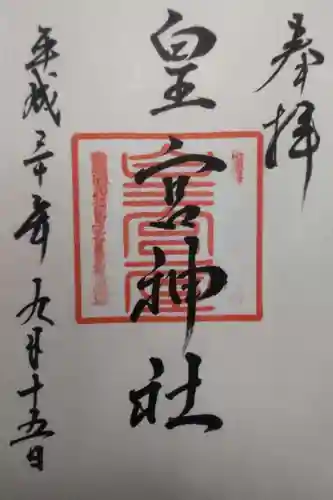 奉拝
皇宮神社
平成三十年九月十五日